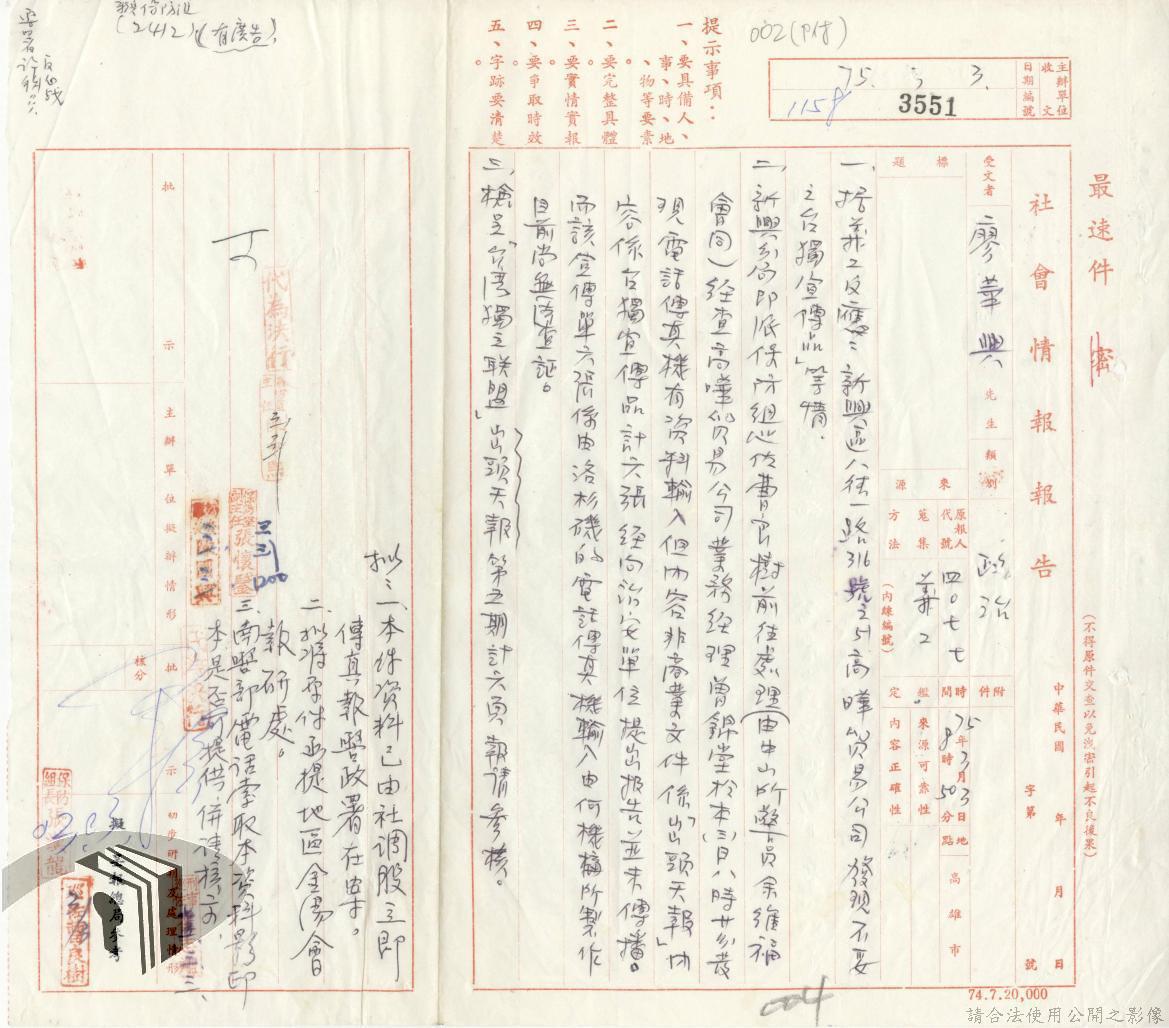 最速件 密
(不得原件交查以免洩密引起不良後果)
社會情報報告
中華民國 年 月 日
字第 號
受文者 廖華興 先生
類別 政治
附件
標題
來源
原報人代號 四〇七七
蒐集方法
(內線編號)
時間 75年3月3日8時50分
地點 高雄市
鑑定
來源可靠性
內容正確性
主辦單位收文
日期 75. 3. 3.
編號 3551
1158
002(P付)
提示事項：
一、要具備人、事、時、地、物等要素。
二、要完整具體。
三、要實情實報。
四、要爭取時效。
五、字跡要清楚。
一、據義工反應：新興區八德一路316號之51高曄貿易公司發現不妥
之台獨宣傳品」等情．
二、新興分局即派保防組巡佐曹良樹前往處理(由中山所警員余維福
會同)經查高曄貿易公司業務經理曾錦堂於本(三)日八時廿分發
現電話傳真機有資料輸入但內容非商業文件係「出頭天報」內
容係台獨宣傳品計六張經向治安單位提出報告並未傳播。
而該宣傳單六張係由洛杉磯的電話傳真機輸入由何機構所製作
目前尚無從查証。
三、檢呈「台灣獨立聯盟」出頭天報第五期計六頁報請參核。
擬：一、本件資料已由社調股立即
傳真報警政署在案。
二、擬將原件函提地區金湯會
報研處。
三、南警部電話索取本資料影印
本是否可提供併請核示．
批示
主辦單位擬辦情形
核分
批示
初步研判及處理情形
代為決行
張懷
擬 報總局參考
(2412)(有廣告)
74.7.20,000
004
請合法使用公開之影像